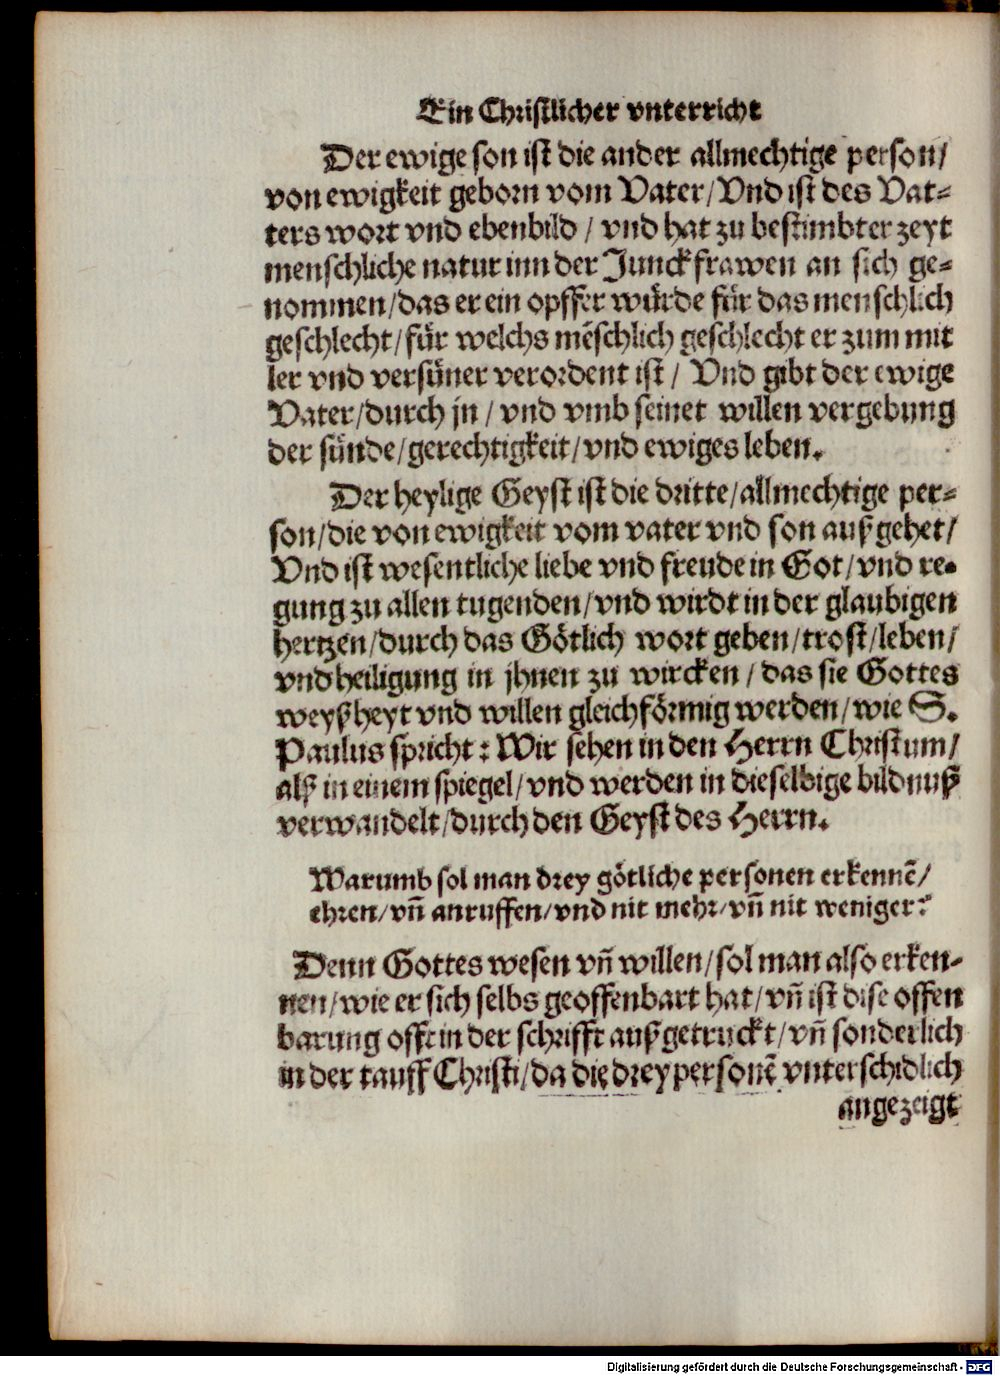 Ein Christlicher vnterricht
Der ewige son ist die ander allmechtige person/
von ewigkeit geborn vom Vater/Vnd ist des Vat-
ters wort vnd ebenbild / vnd hat zu bestimbter zeyt
menschliche natur inn der Junckfrawen an sich ge-
nommen/das er ein opffer würde für das menschlich
geschlecht/für welchs mēschlich geschlecht er zum mit
ler vnd versüner verordent ist / Vnd gibt der ewige
Vater/durch jn / vnd vmb seinet willen vergebung
der sünde/gerechtigkeit/vnd ewiges leben.
Der heylige Geyst ist die dritte/allmechtige per-
son/die von ewigkeit vom vater vnd son außgehet/
Vnd ist wesentliche liebe vnd freude in Got/vnd re-
gung zu allen tugenden/vnd wirdt in der glaubigen
hertzen/durch das Götlich wort geben/trost/leben/
vnd heiligung in jhnen zu wircken / das sie Gottes
weyßheyt vnd willen gleichförmig werden/wie S.
Paulus spricht: Wir sehen in den Herrn Christum/
alß in einem spiegel/vnd werden in dieselbige bildnuß
verwandelt/durch den Geyst des Herrn.
Warumb sol man drey götliche personen erkennē/
ehren/vn̄ anruffen/vnd nit mehr/vn̄ nit weniger?
Denn Gottes wesen vn̄ willen/sol man also erken-
nen/wie er sich selbs geoffenbart hat/vn̄ ist dise offen
barung offt in der schrifft außgetruckt/vn̄ sonderlich
in der tauff Christi/da die drey personē vnterschidlich
angezeigt
Digitalisierung gefördert durch die Deutsche Forschungsgemeinschaft - DFG